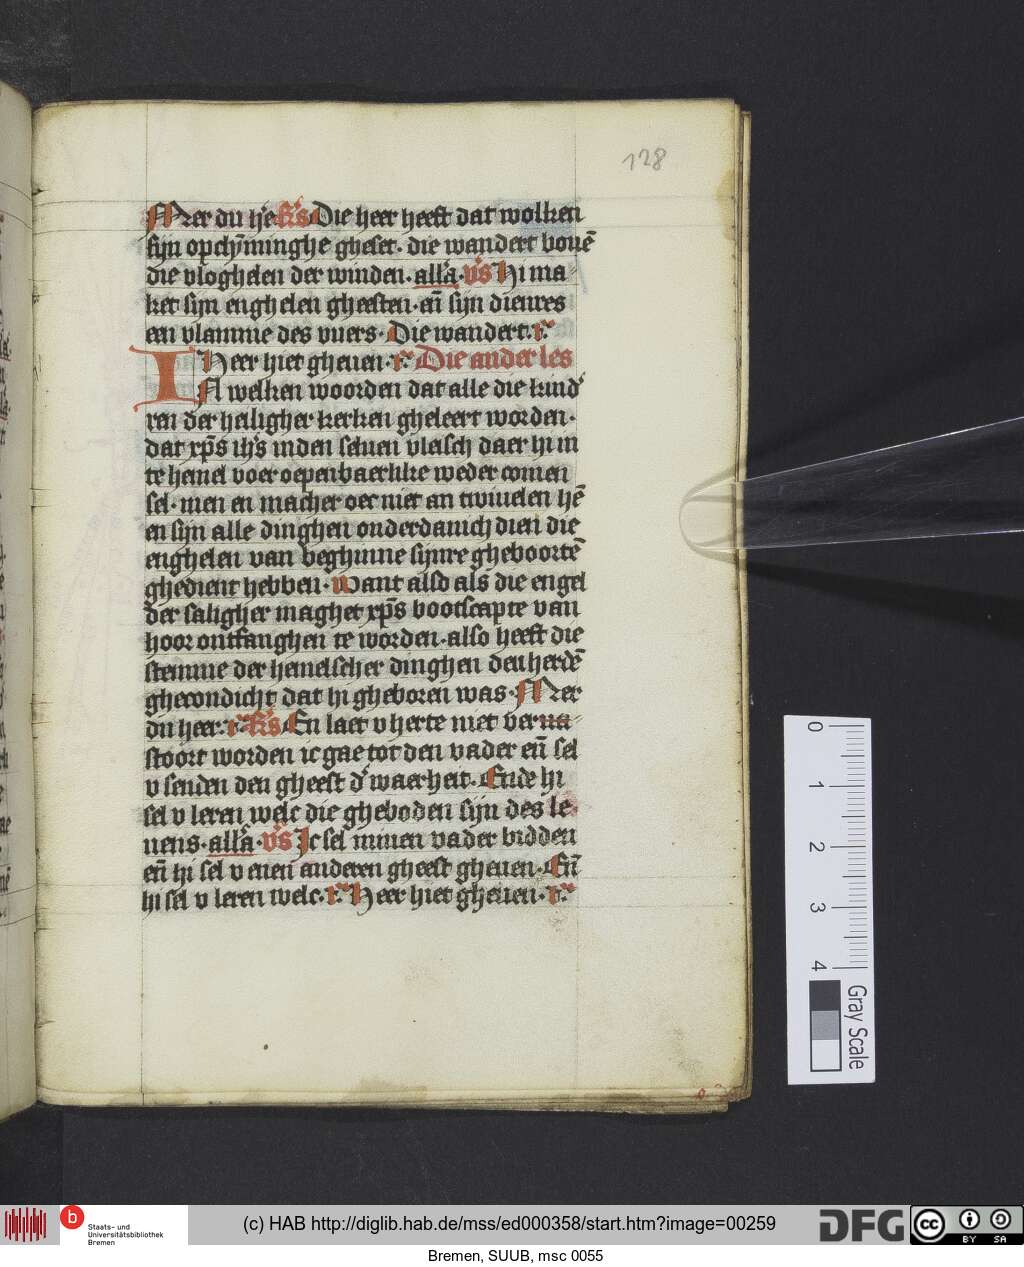 128
Mer du he R's Die heer heeft dat wolken
sijn opclȳminghe gheset. die wandert bouē
die vloghelen der winden. all'a. v's Hi ma
ket sijn enghelen gheesten. eñ sijn dienres
een vlamme des vuers. Die wandert. r.
Heer hier gheuen. r. Die ander les
IN welken woorden dat alle die kind'
ren der heiligher kerken gheleert worden.
dat xp̄s ih's inden seluen vleisch daer hi in
te hemel voer oepenbaerlike weder comen
sel. men en machet oec niet an twiuelen hē
en sijn alle dinghen onderdanich dien die
enghelen van beghinne sijnre gheboortē
ghedient hebben. want also als die engel
der saligher maghet xp̄s bootscapte van
hoor ontfanghen te worden. also heeft die
stemme der hemelscher dinghen den herdē
ghecondicht dat hi gheboren was. Mer
du heer. r. R's En laet v herte niet ver
stoort worden ic gae tot den vader eñ sel
v senden den gheest d' waerheit. Ende hi
sel v leren welc die gheboden sijn des le
uens. all'a. v's Ic sel minen vader bidden
eñ hi sel v enen anderen gheest gheuen. Eñ
hi sel v leren welc. r. Heer hier gheuen. r.
0
1
2
3
4
Gray Scale
b
Staats- und
Universitätsbibliothek
Bremen
(c) HAB http://diglib.hab.de/mss/ed000358/start.htm?image=00259
DFG
cc
BY SA
Bremen, SUUB, msc 0055